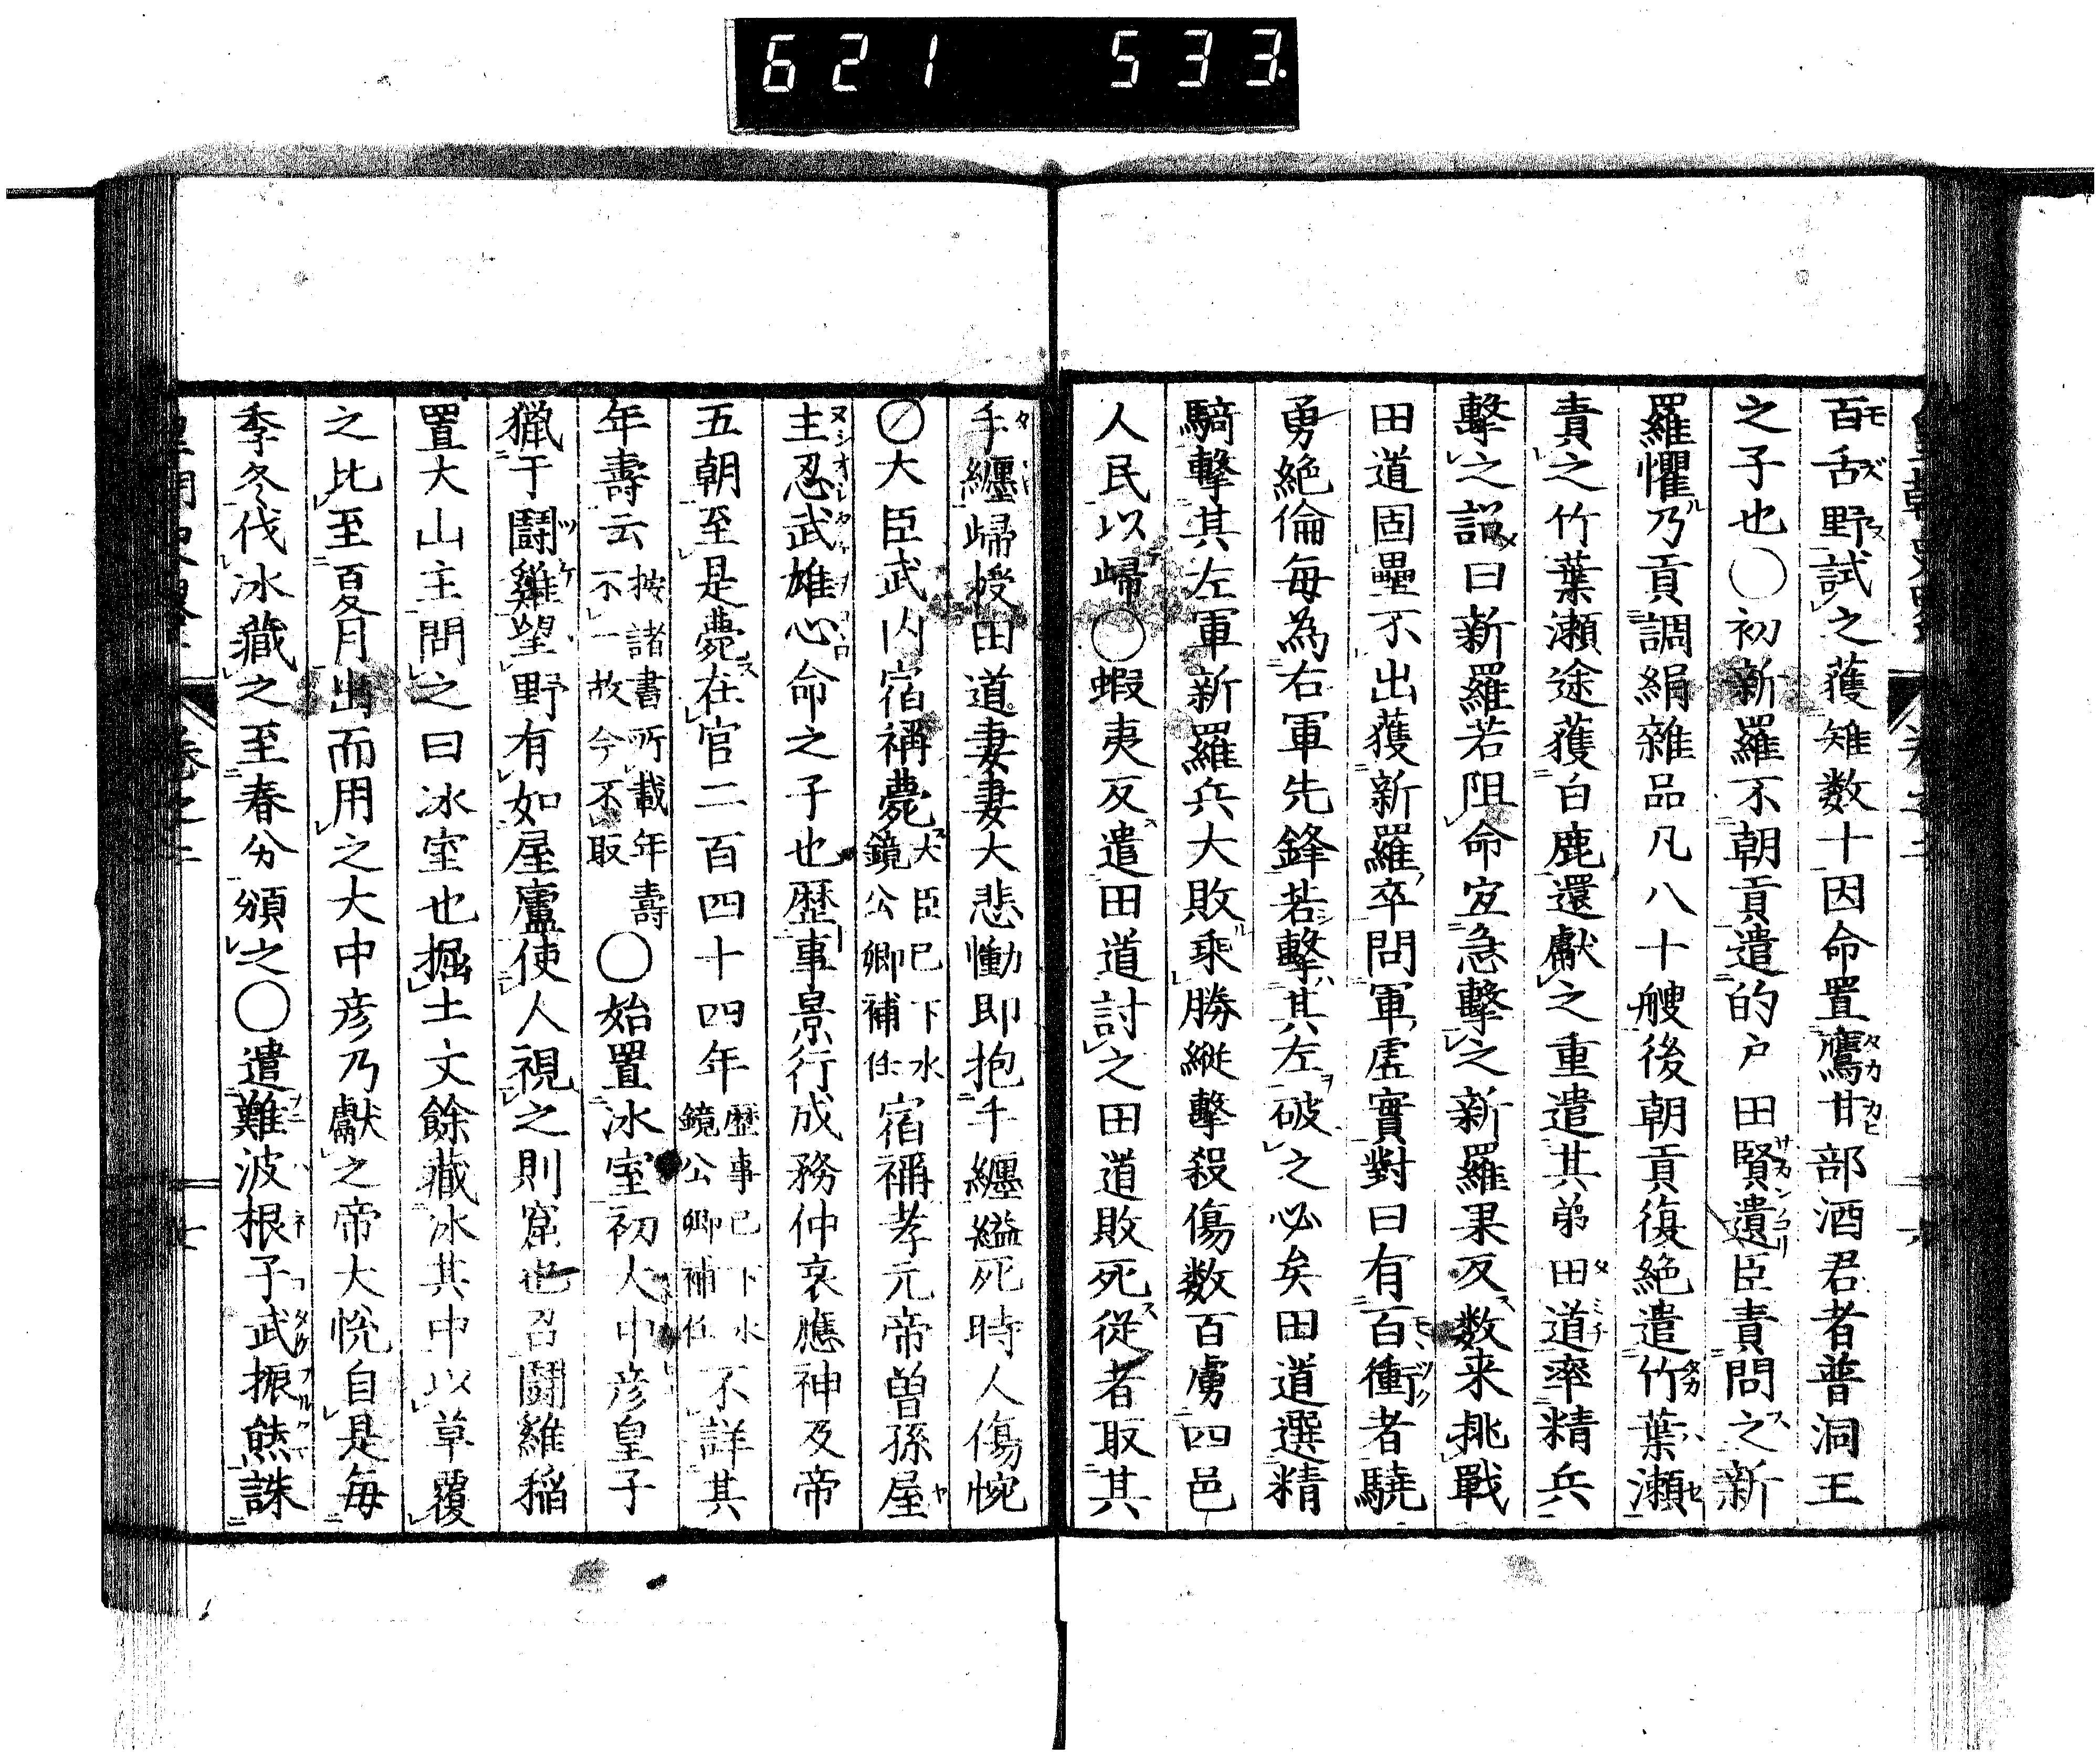 621 533.
百舌野試之獲雉数十因命置鷹甘部酒君者普洞王
之子也○初新羅不朝貢遣的戸田賢遺臣責問之新
羅懼乃貢調絹雜品凡八十艘後朝貢復絶遣竹葉瀬
責之竹葉瀬途獲白鹿還獻之重遣其弟田道率精兵
擊之詔曰新羅若阻命宜急擊之新羅果反数来挑戰
田道固壘不出獲新羅卒問軍虛實對曰有百衝者驍
勇絶倫每為右軍先鋒若擊其左破之必矣田道選精
騎擊其左軍新羅兵大敗乘勝縱擊殺傷数百虜四邑
人民以歸○蝦夷反遣田道討之田道敗死從者取其
手纏歸授田道妻妻大悲慟即抱手纏縊死時人傷惋
○大臣武内宿禰薨大臣已下水鏡公卿補任宿禰孝元帝曽孫屋
主忍武雄心命之子也歴事景行成務仲哀應神及帝
五朝至是薨在官二百四十四年歴事已下水鏡公卿補任不詳其
年壽云按諸書所載年壽不一故今不取○始置冰室初大中彦皇子
獵于鬪雞望野有如屋廬使人視之則窟也召鬪雞稲
置大山主問之曰冰室也掘土丈餘藏冰其中以草覆
之比至夏月出而用之大中彦乃獻之帝大悦自是每
季冬伐冰藏之至春分頒之○遣難波根子武振熊誅